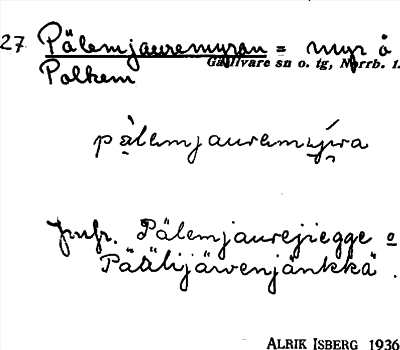 27 Pälemjauremyran = myr å
Gällivare sn o. tg, Norrb. l.
Polkem
pàlemjauremýra
Jmfr. Pälemjaurejiegge o
Päälijärvenjänkkä.
ALRIK ISBERG 1936